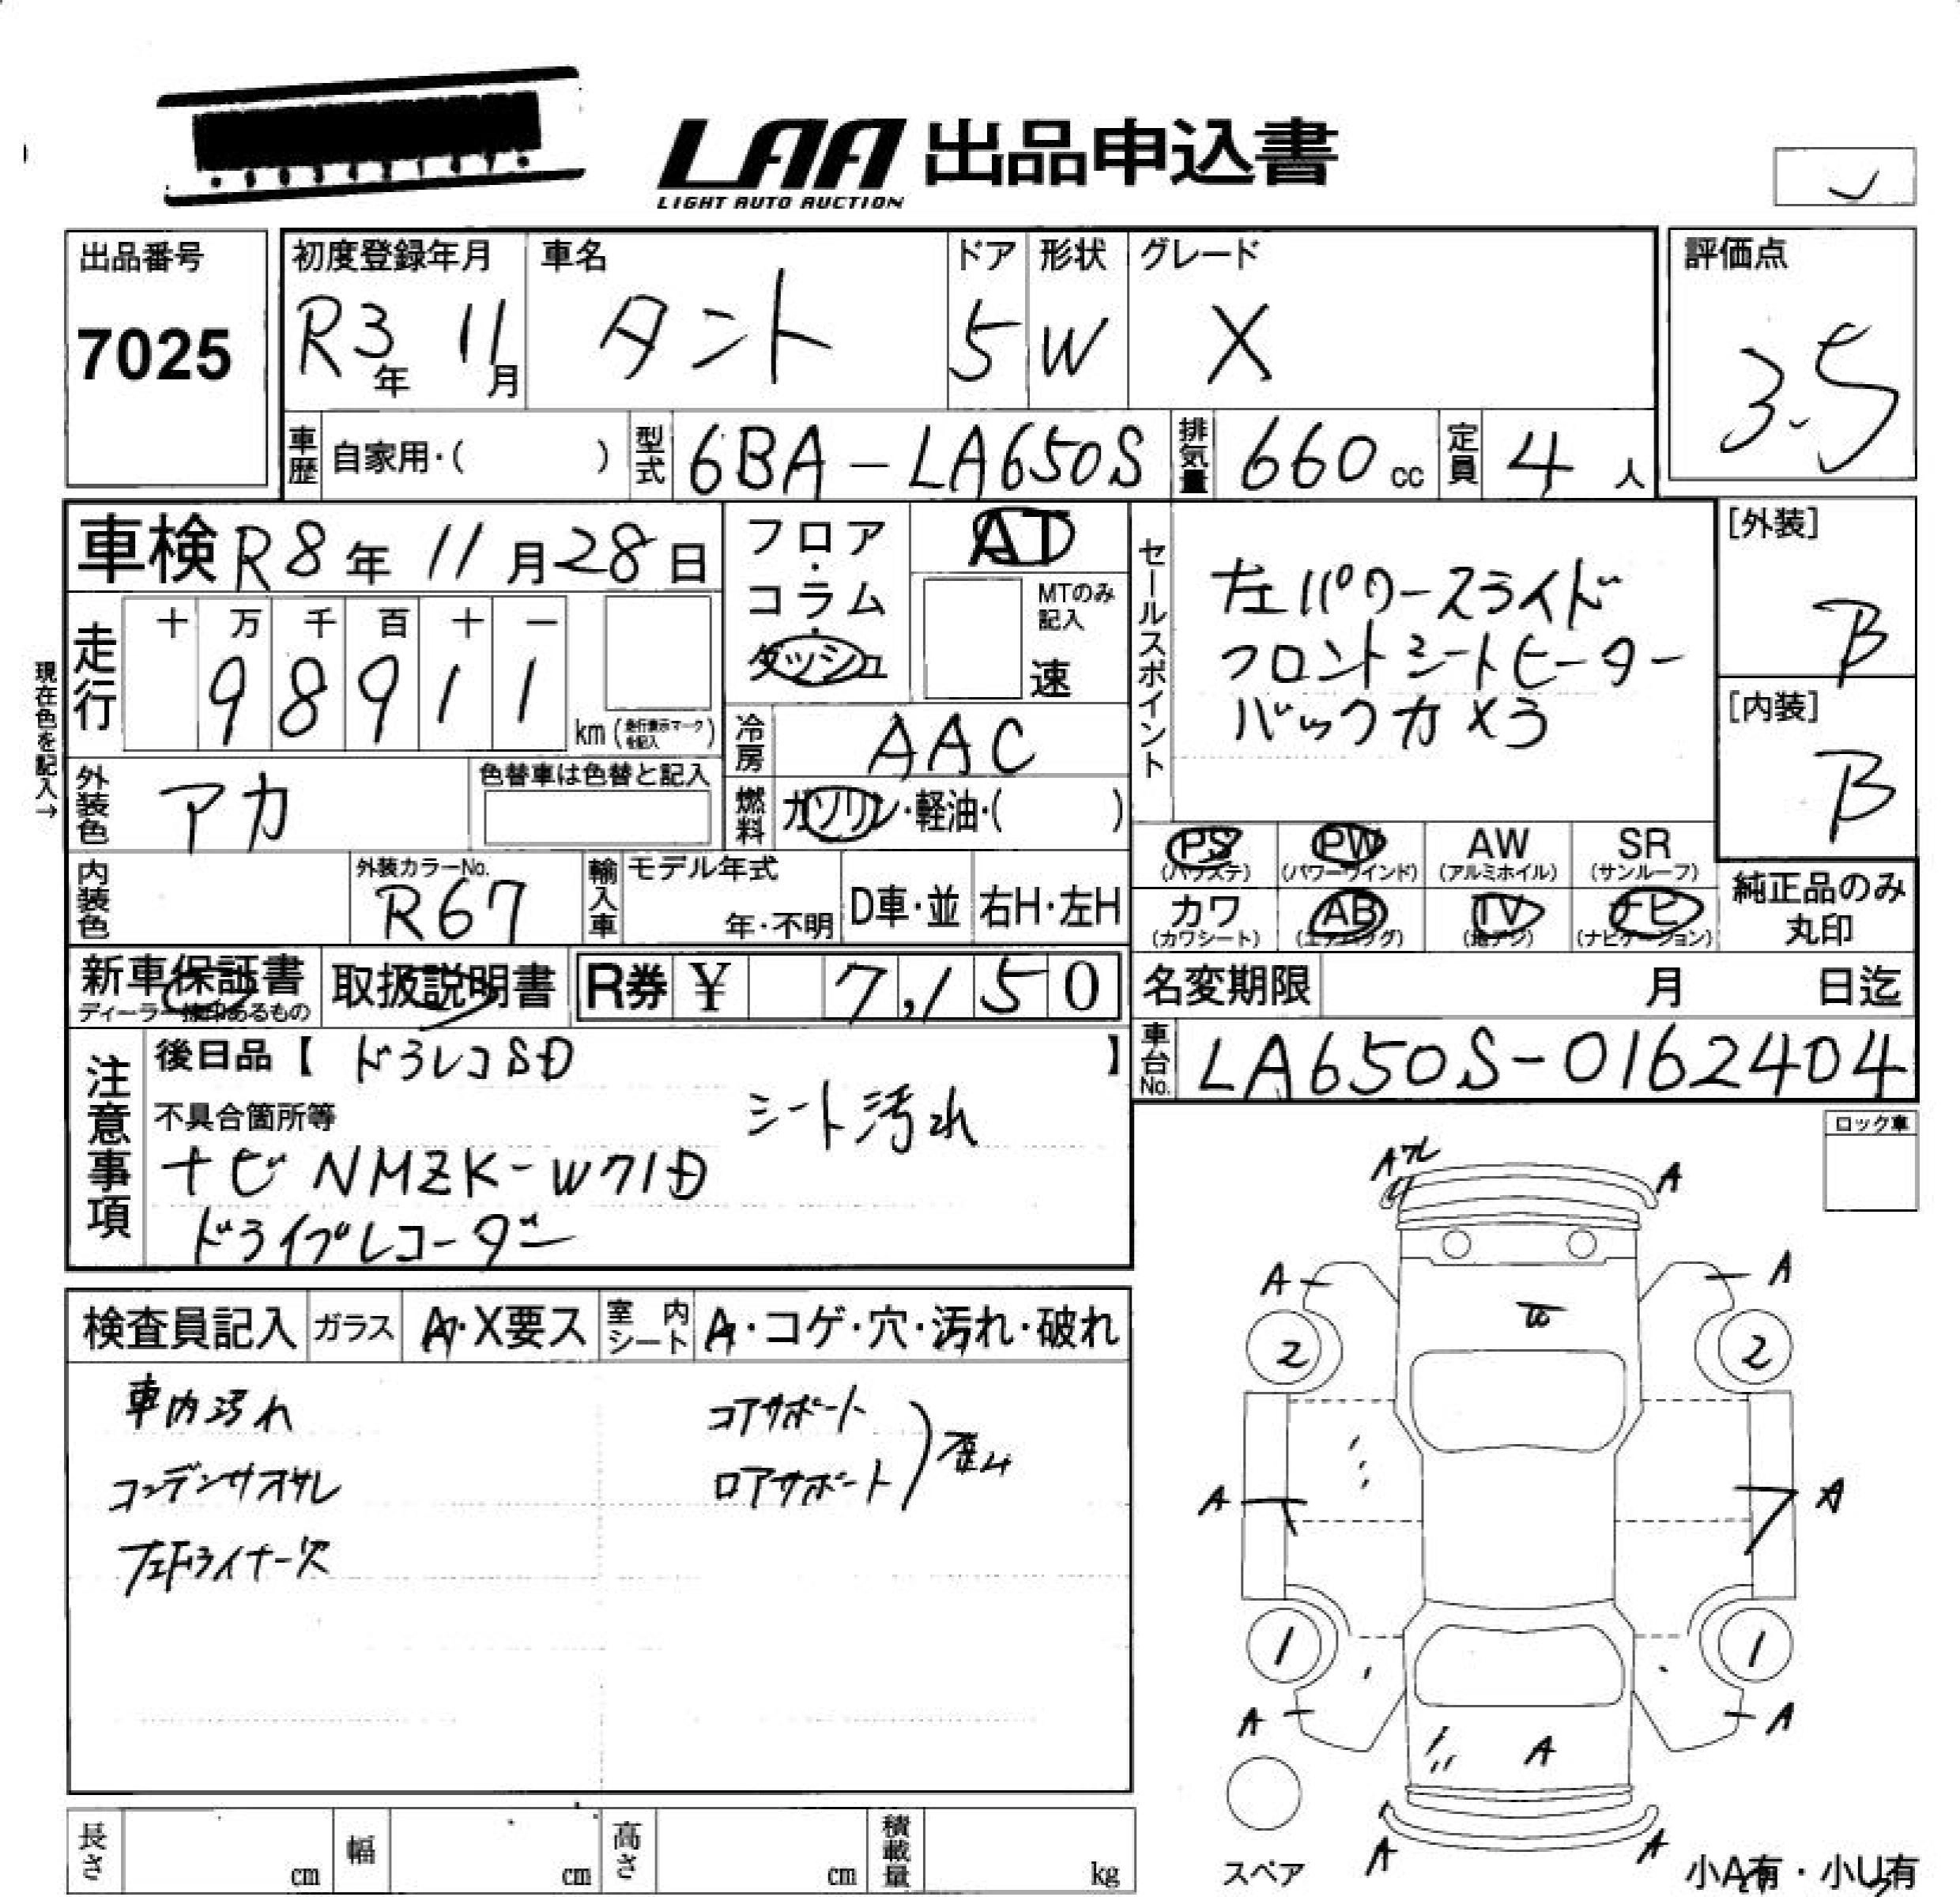 LAA 出品申込書
LIGHT AUTO AUCTION
出品番号
7025
初度登録年月
R3年 11月
車名
タント
ドア
5
形状
W
グレード
X
評価点
3.5
車歴 自家用・( )
型式 6BA-LA650S
排気量 660 cc
定員 4 人
車検 R8年 11月28日
現在色を記入→
走行
十 万 千 百 十 一
9 8 9 1 1
km (走行表示マークを記入)
外装色 アカ
色替車は色替と記入
内装色
外装カラーNo.
R67
フロア・コラム・ダッシュ
AT
MTのみ記入
速
冷房 AAC
燃料 ガソリン・軽油・( )
輸入車
モデル年式
年・不明
D車・並
右H・左H
セールスポイント
左パワースライド
フロントシートヒーター
バックカメラ
[外装]
B
[内装]
B
PS (パワステ)
PW (パワーウインド)
AW (アルミホイル)
SR (サンルーフ)
カワ (カワシート)
AB (エアバッグ)
TV (地デジ)
ナビ (ナビゲーション)
純正品のみ
丸印
新車保証書
ディーラー捺印あるもの
取扱説明書
R券 ¥ 7,150
名変期限 月 日迄
車台No. LA650S-0162404
注意事項
後日品【 ドラレコSD 】
不具合箇所等
シート汚れ
ナビ NMZK-W71D
ドライブレコーダー
ロック車
検査員記入
ガラス A・X要ス
室内シート A・コゲ・穴・汚れ・破れ
車内汚れ
コンデンサオサレ
左Fライナー欠
コアサポート
ロアサポート
歪ム
A
A
A
A
2
2
A
A
1
1
A
A
A
A
A
スペア
小A有・小U有
長さ cm
幅 cm
高さ cm
積載量 kg